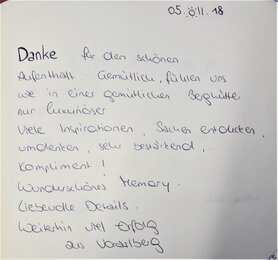 05. 11. 18
Danke für den schönen
Aufenthalt. Gemütlich, fühlen uns
wie in einer gemütlichen Berghütte
nur luxuriöser.
Viele Inspirationen, Sachen entdecken,
umdenken, sehr
Kompliment!
Wunderschönes Memory.
Liebevolle Details.
Weiterhin viel Erfolg
aus Vorarlberg